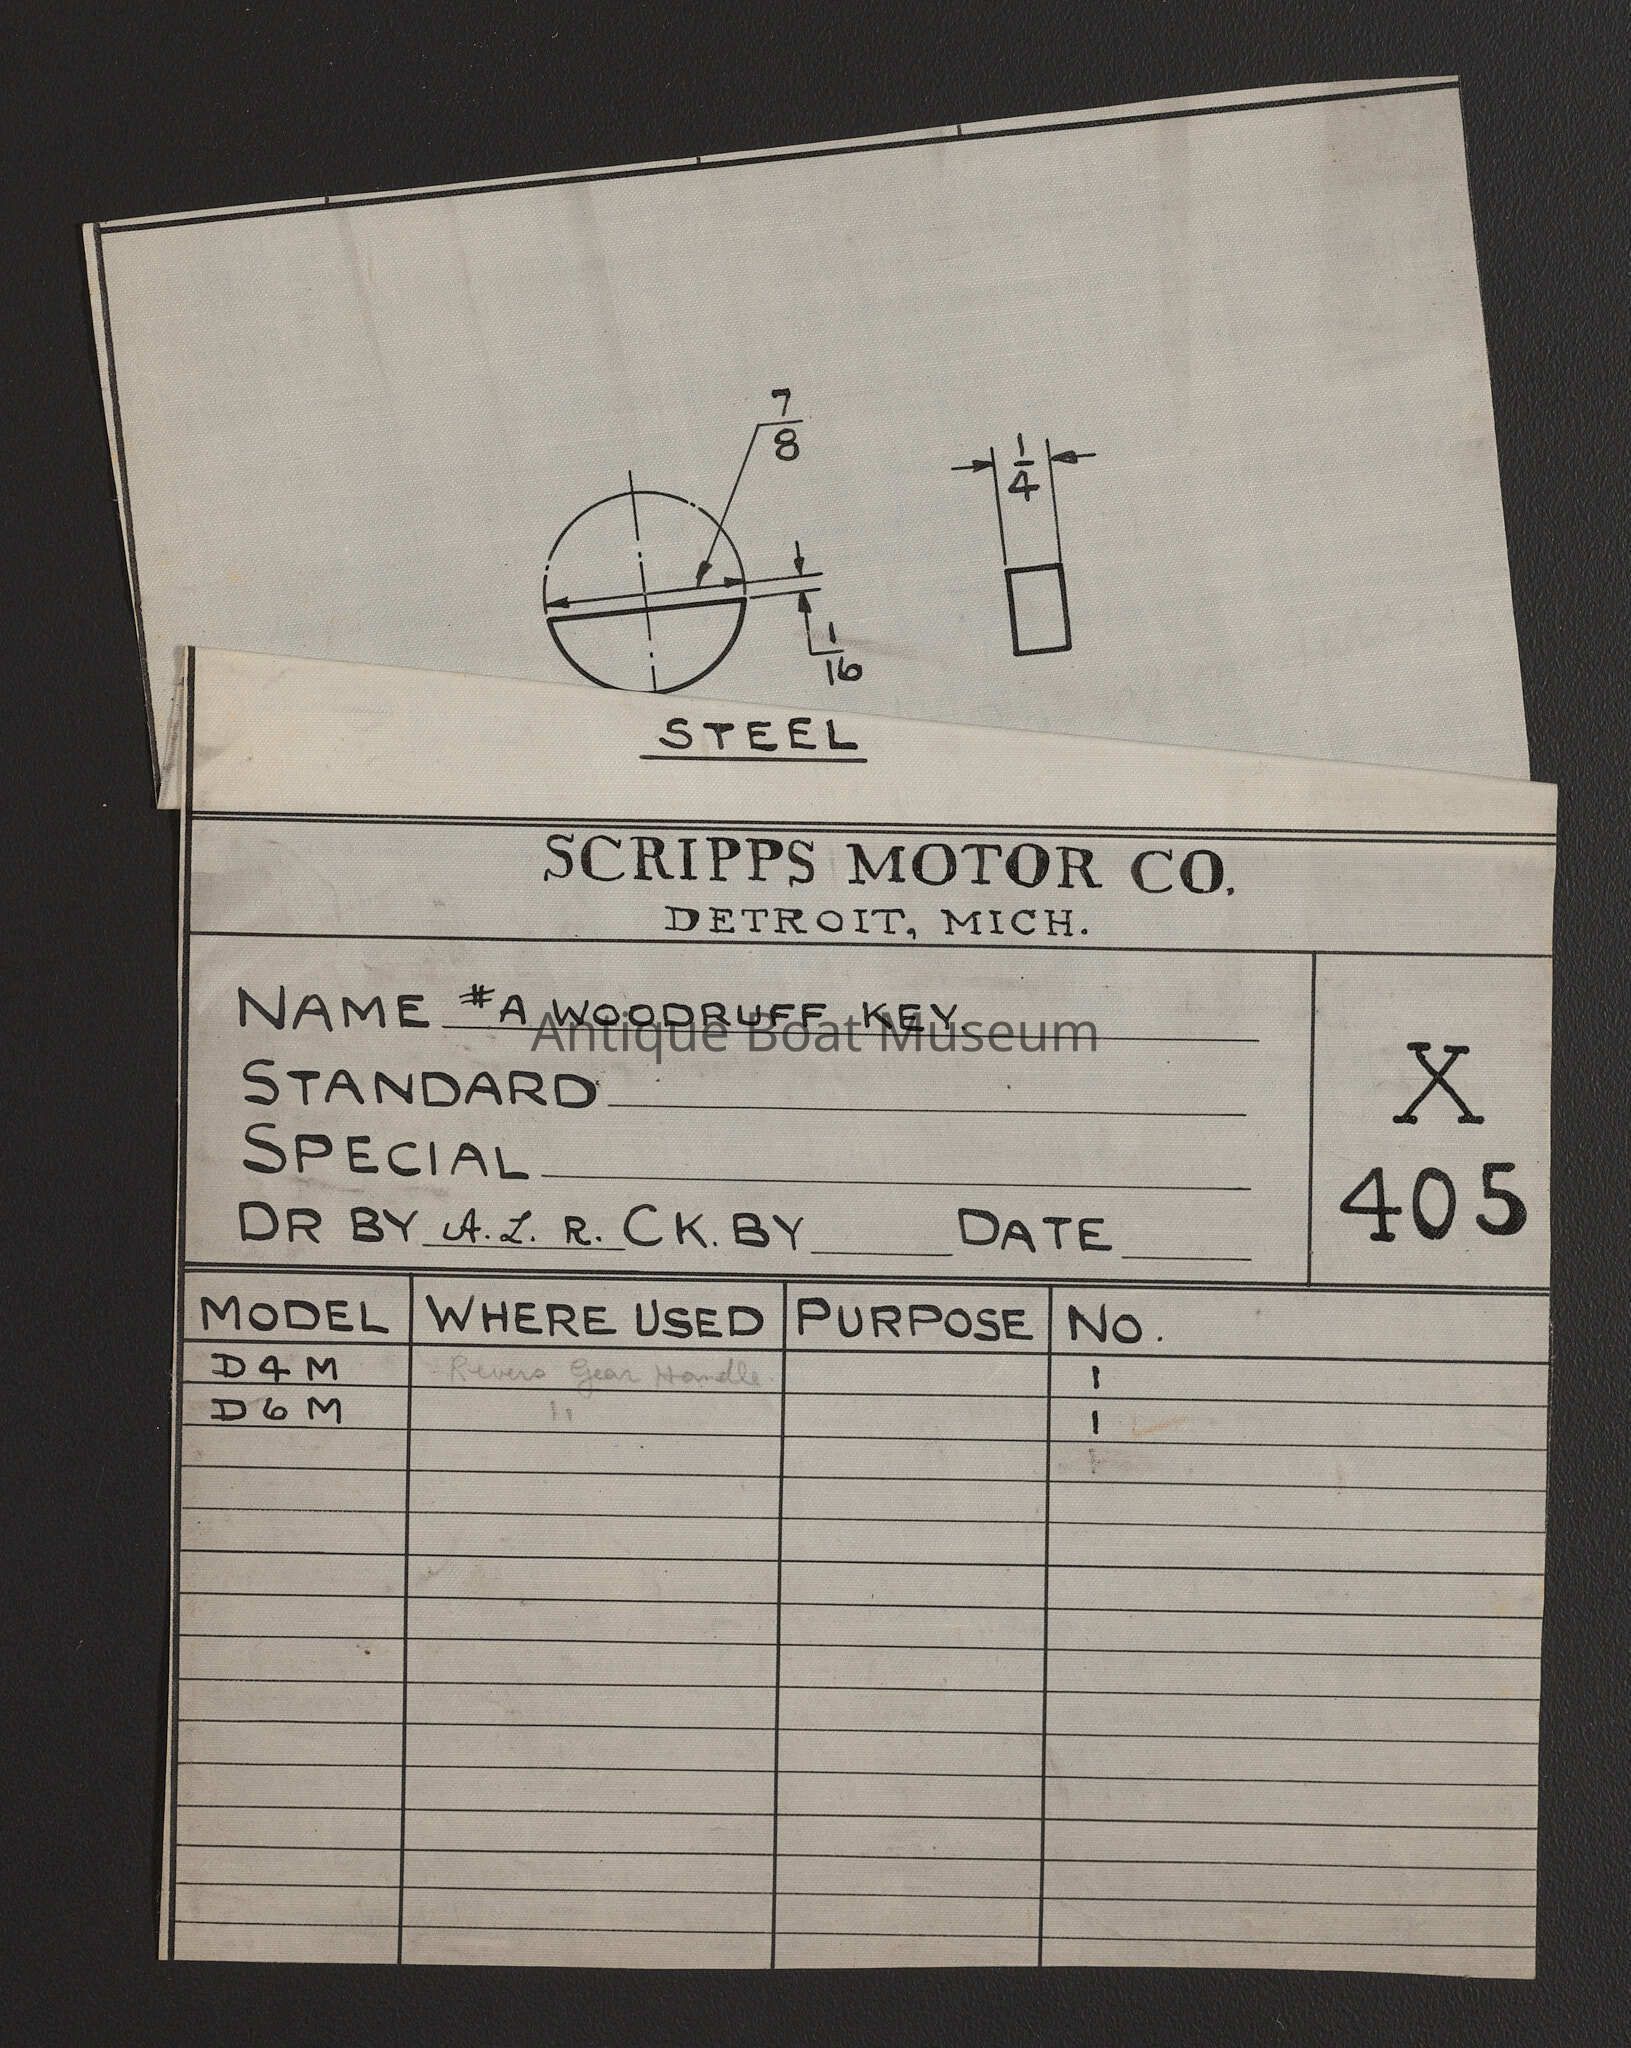 7/8
1/4
1/16
STEEL
SCRIPPS MOTOR CO.
DETROIT, MICH.
NAME #A WOODRUFF KEY
Antique Boat Museum
STANDARD
SPECIAL
DR BY A.L.R. CK. BY DATE
X
405
MODEL WHERE USED PURPOSE NO.
D4M Revers Gear Handle 1
D6M " 1